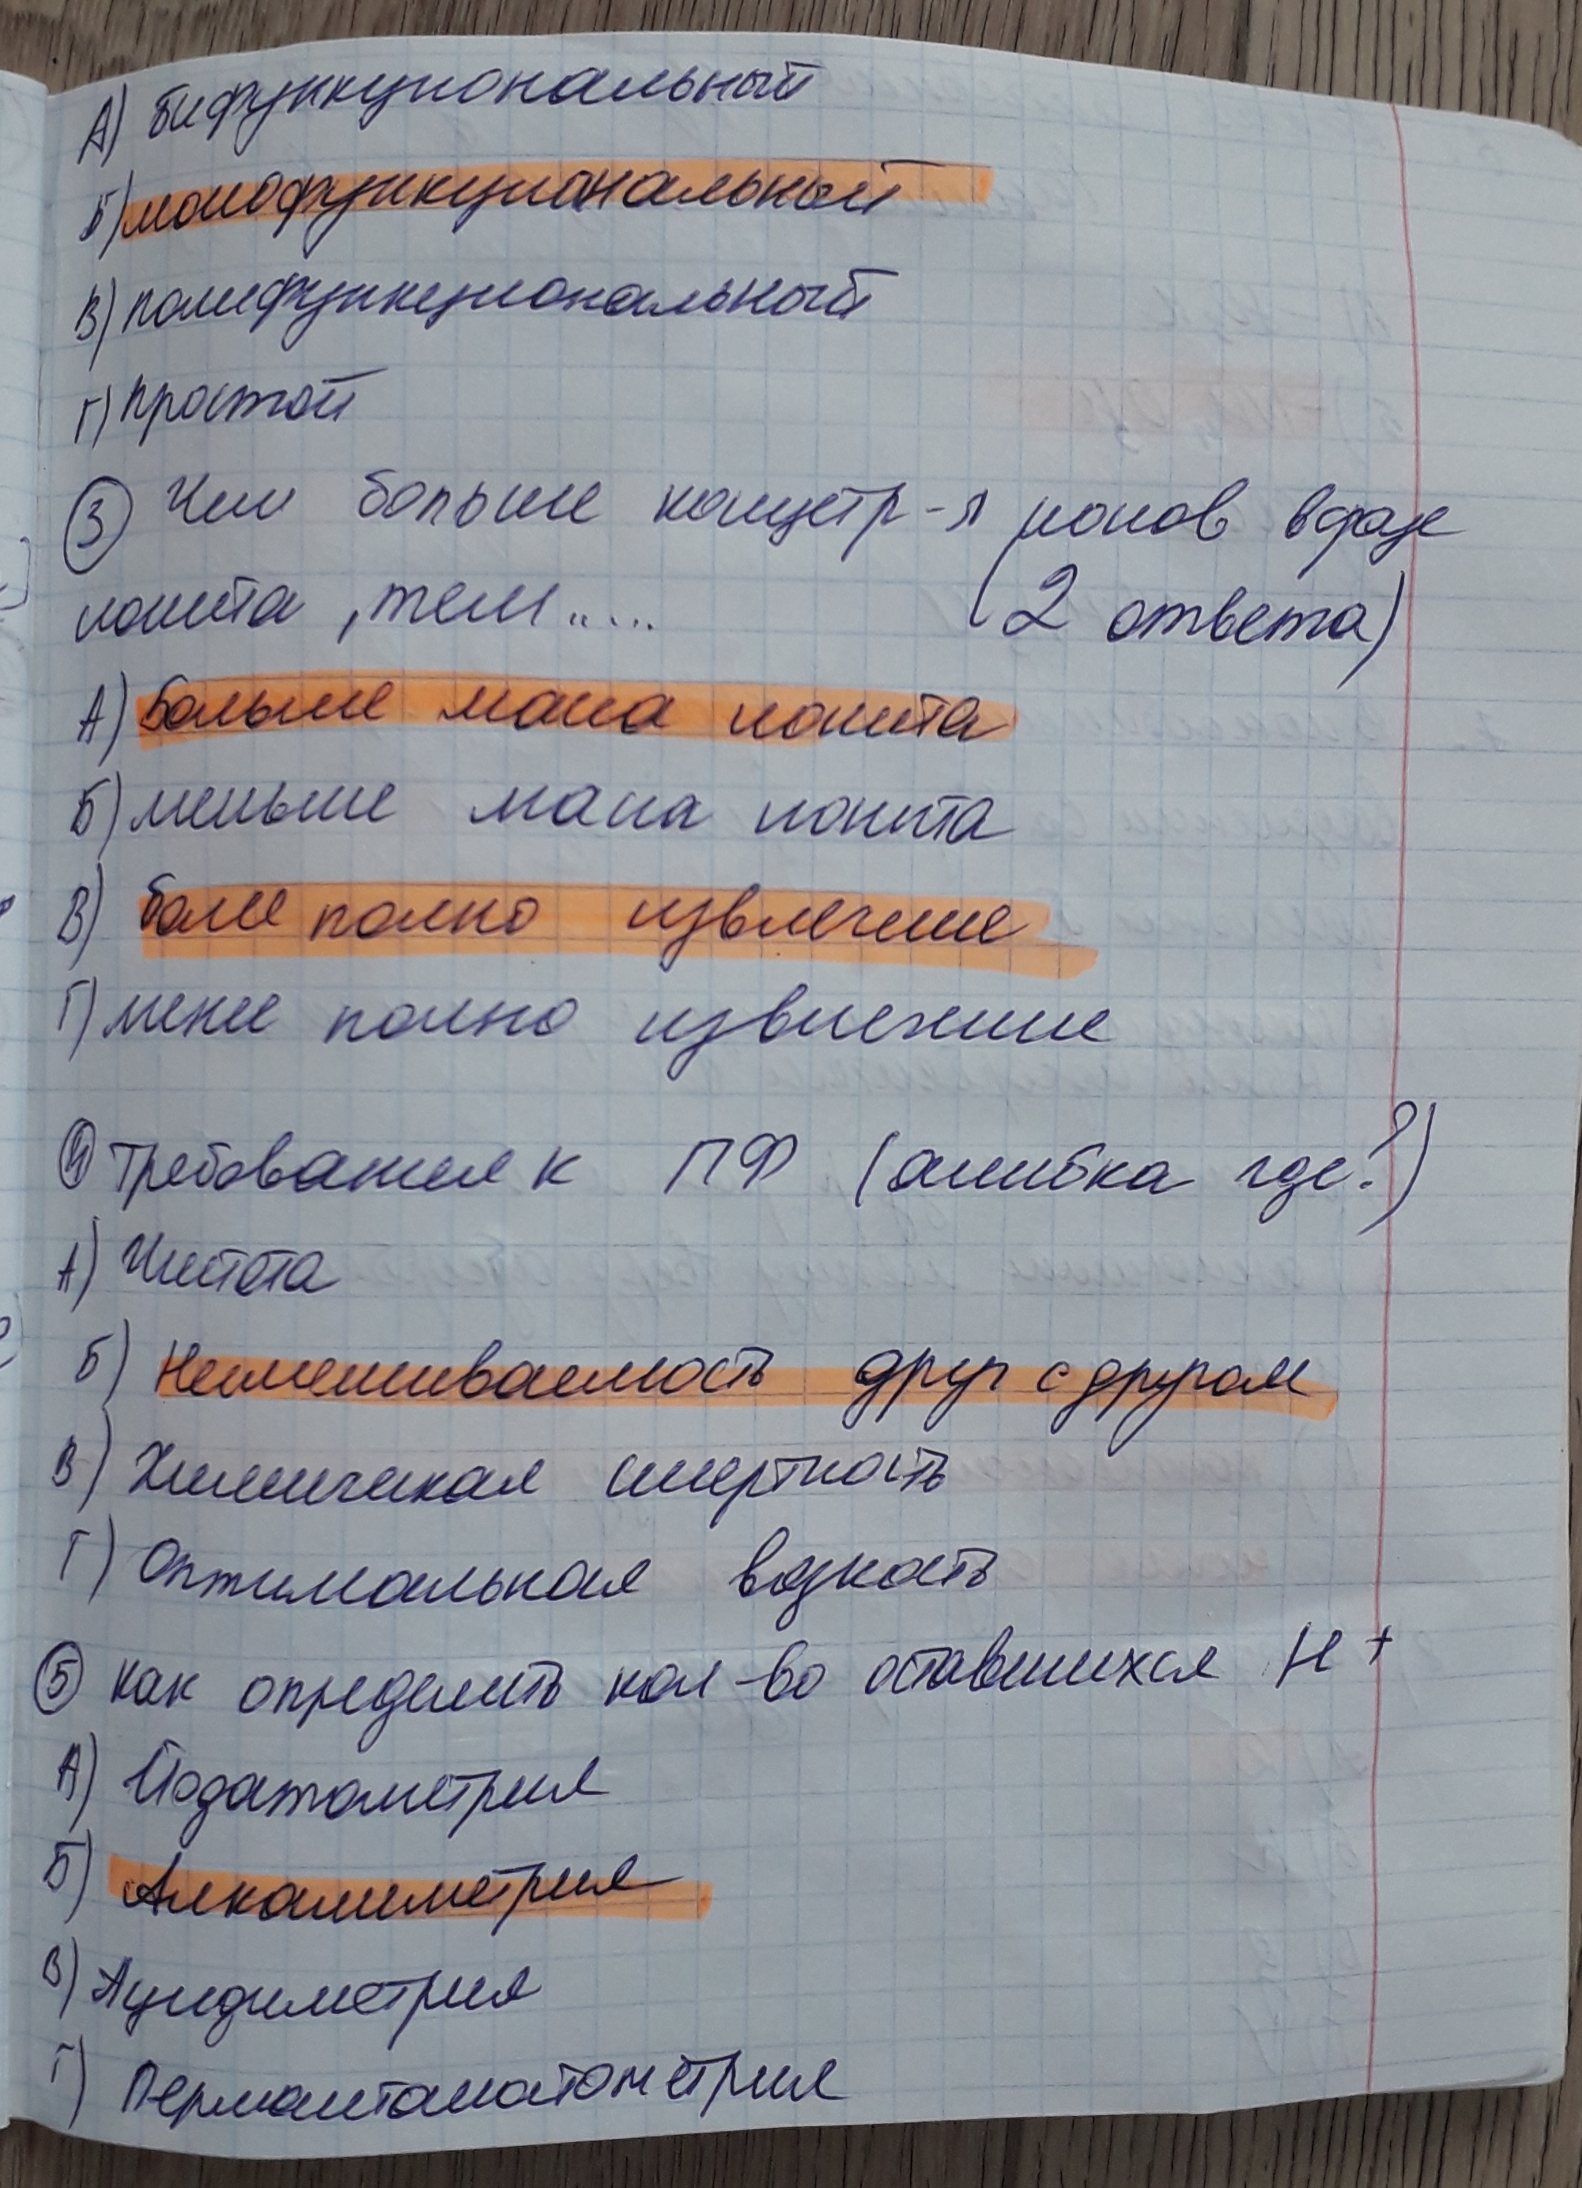 А) бифункциональный
Б) монофункциональный
В) полифункциональный
Г) простой
③ Чем больше концетр-я ионов в фазе
ионита, тем..... (2 ответа)
А) Больше масса ионита
Б) меньше масса ионита
В) более полно извлечение
Г) менее полно извлечение
④ Требования к ПФ (ошибка где?)
А) Чистота
Б) Несмешиваемость друг с другом
В) Химическая инертность
Г) Оптимальная вязкость
⑤ Как определить кол-во оставшихся H+
А) Йодатометрия
Б) Алкалиметрия
В) Ацидиметрия
Г) Перманганатометрия